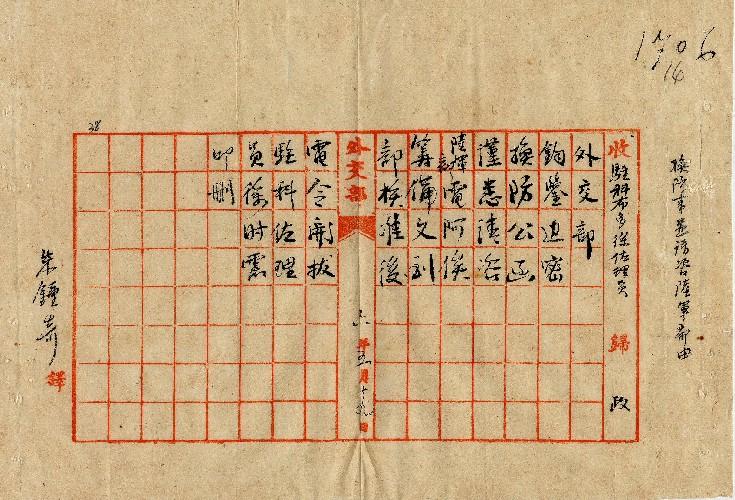 換防事並請咨陸軍部由
收駐科布多徐佐理員 歸 政
外交部
鈞鑒迅密
換防公函
謹悉請咨
陸 部電阿俟
籌備文到
部核准後
外交部 六年 月十 日
電令開拔
駐科佐理
員徐時震
叩刪
38
譯